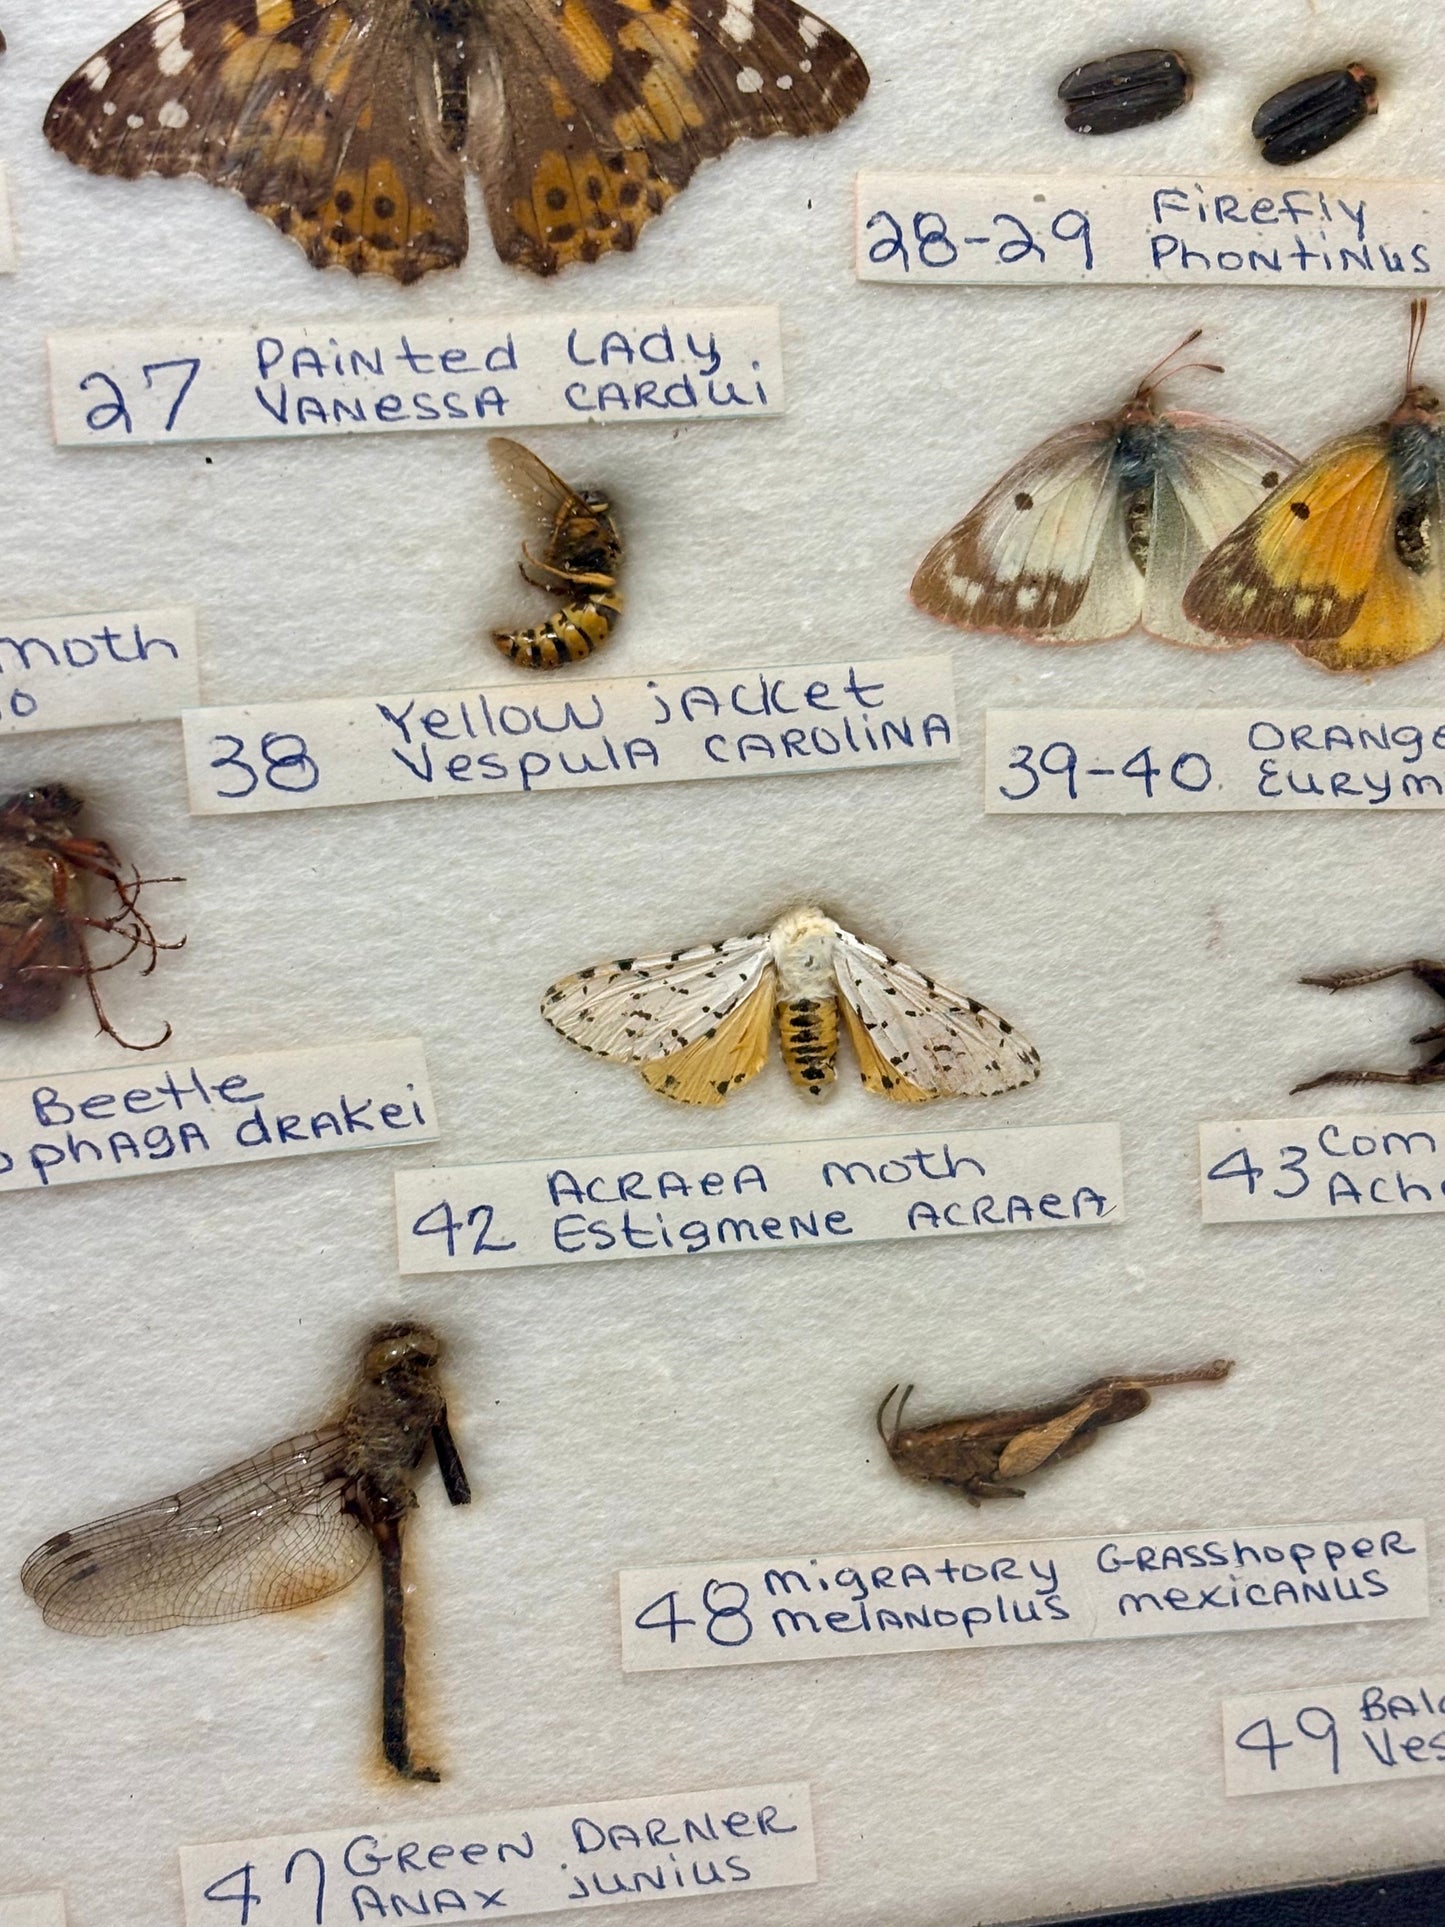 28-29 Firefly
Phontinus
27 Painted Lady
Vanessa cardui
moth
38 Yellow jacket
Vespula carolina
39-40. Orange
Eurym
Beetle
ophaga drakei
42 Acraea moth
Estigmene acraea
43 Com
Ach
48 Migratory Grasshopper
melanoplus mexicanus
49 Bal
Ves
47 Green Darner
Anax junius